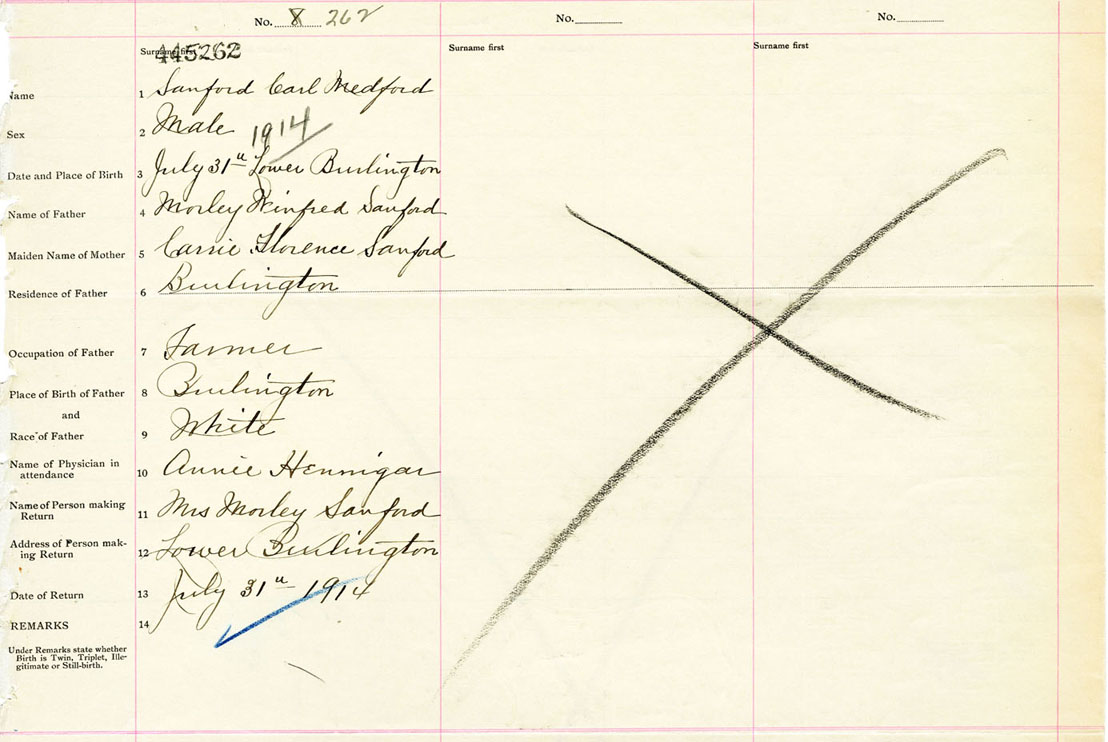 No. 8 262
No.
No.
Surname first
445262
Surname first
Surname first
Name 1 Sanford Carl Medford
Sex 2 Male
1914
Date and Place of Birth 3 July 31st Lower Burlington
Name of Father 4 Morley Winfred Sanford
Maiden Name of Mother 5 Carrie Florence Sanford
Residence of Father 6 Burlington
Occupation of Father 7 Farmer
Place of Birth of Father 8 Burlington
and
Race of Father 9 White
Name of Physician in
attendance 10 Annie Hennigar
Name of Person making
Return 11 Mrs Morley Sanford
Address of Person mak-
ing Return 12 Lower Burlington
Date of Return 13 July 31st 1914
REMARKS 14
Under Remarks state whether
Birth is Twin, Triplet, Ille-
gitimate or Still-birth.